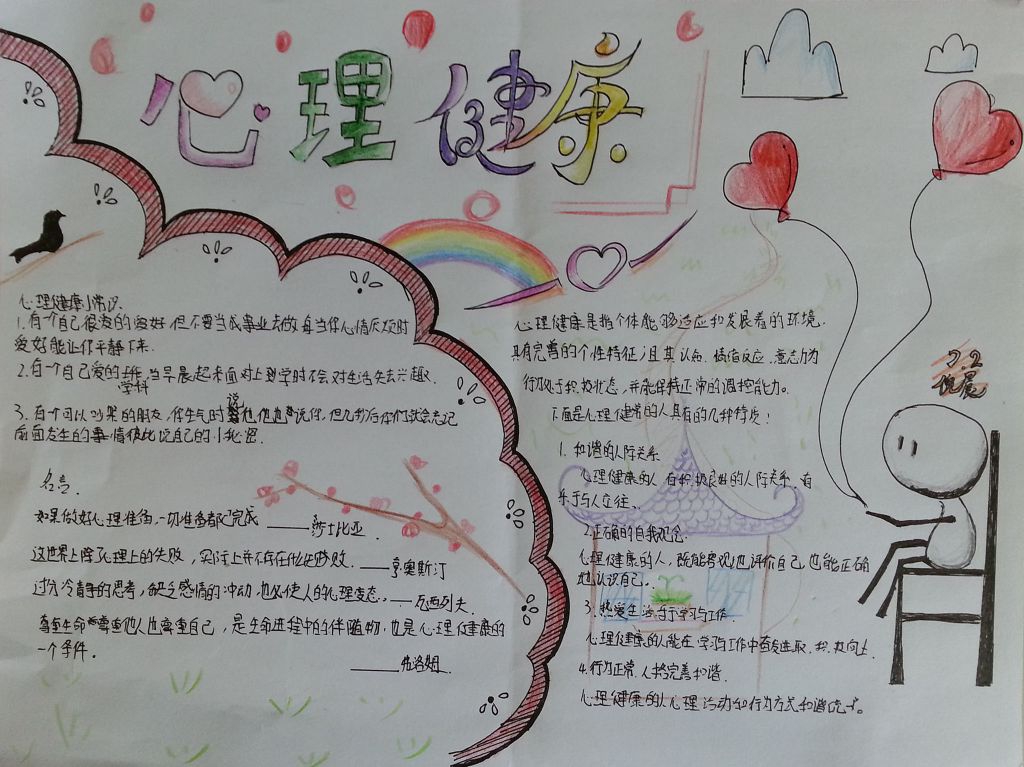 心理健康
心理健康小常识.
1.有一个自己很爱的爱好,但不要当成事业去做,每当你心情厌烦时
爱好能让你平静下来.
2.有一个自己爱的学科,当早晨起来面对上到学时不会对生活失去兴趣.
3.有一个可以分果的朋友,你生气时说他他也说你,但几秒后你们就会忘记
前面发生的事情彼此说自己的小秘密.
名言.
如果做好心理准备,一切准备都已完成 ——莎士比亚.
这世界上除了心理上的失败,实际上并不存在什么失败.——亨·奥斯汀
过分冷静的思考,缺乏感情的冲动,也必使人的心理变态.——瓦西列夫.
尊重生命尊重他人也尊重自己,是生命进程中的伴随物,也是心理健康的
一个条件.
——弗洛姆.
心理健康是指个体能够适应和发展着的环境.
具有完善的个性特征;且其认知.情绪反应.意志行为
行处于积极状态,并能保持正常的调控能力。
下面是心理健常的人具有的几种特质:
1.和谐的人际关系
心理健康的人有积极良好的人际关系.有
乐于与人交往.
2.正确的自我观念.
心理健康的人,既能客观地评价自己,也能正确
地认识自己.
3.热爱生活,乐于学习与工作.
心理健康的人能在学习与工作中奋发进取.积极向上.
4.行为正常.人格完善和谐.
心理健康的人心理活动和行为方式和谐统一。
7.2